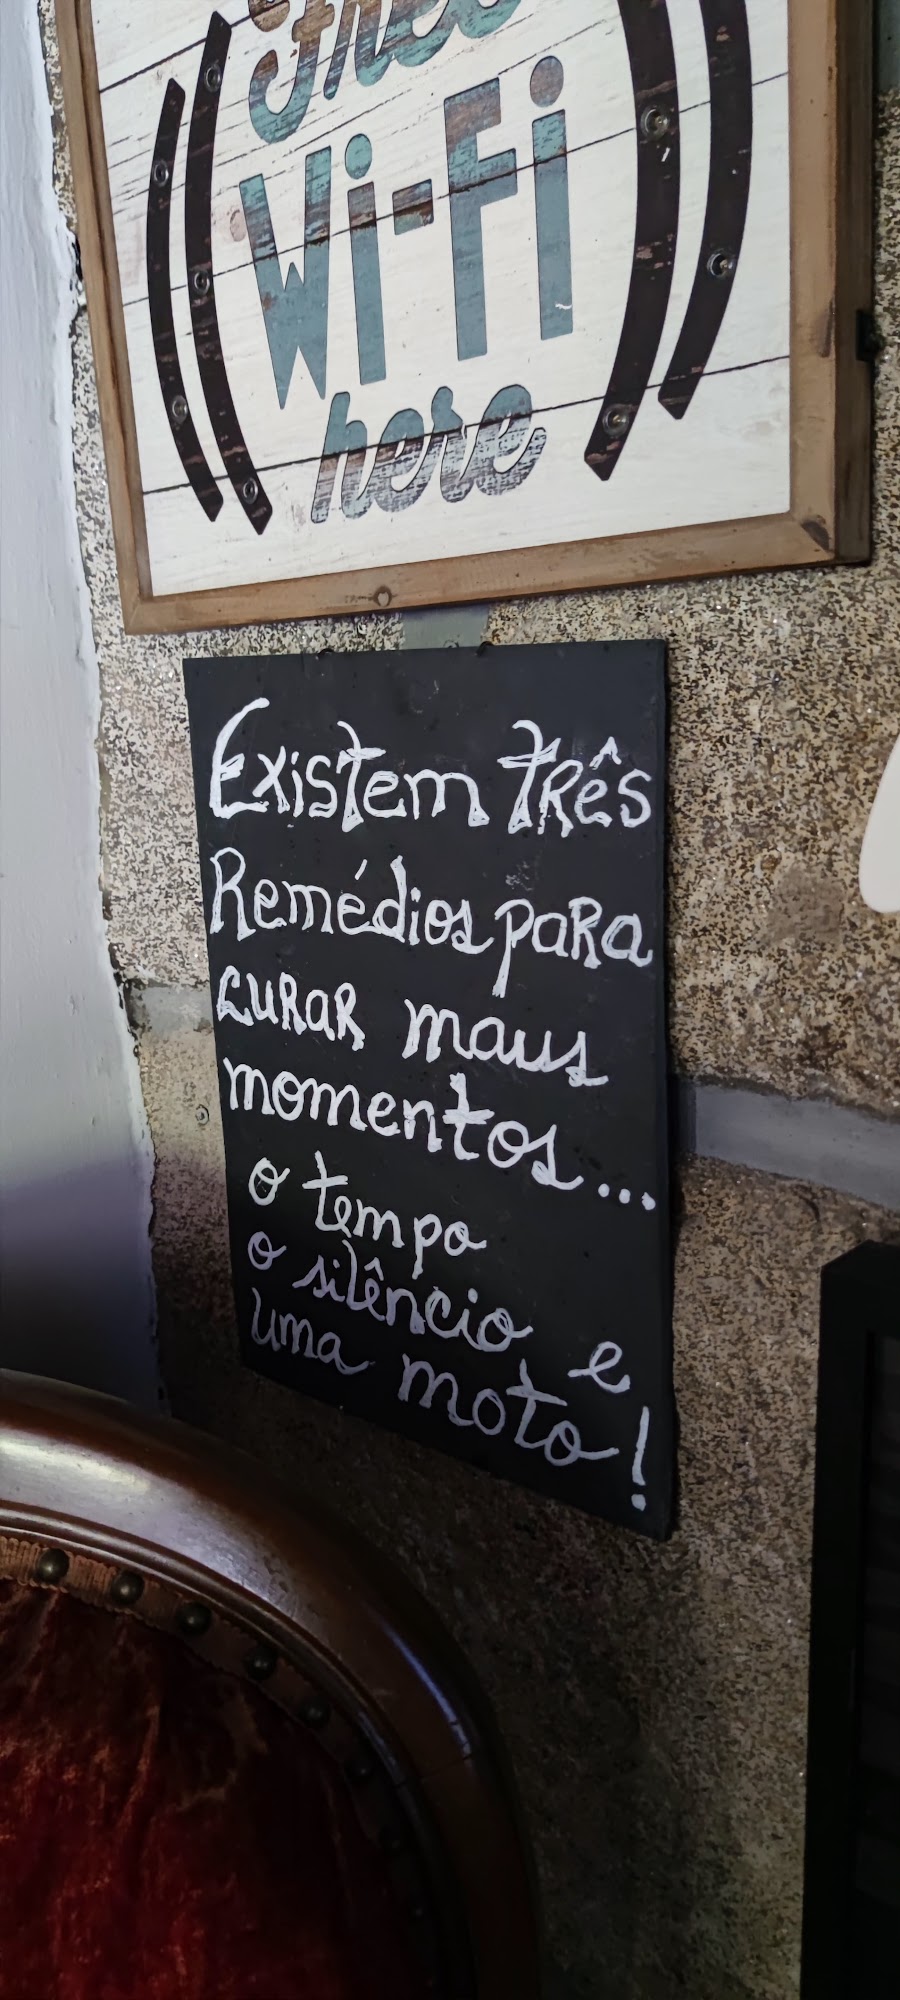 Free
Wi-Fi
here
Existem três
Remédios para
curar maus
momentos...
o tempo
o silêncio e
uma moto!